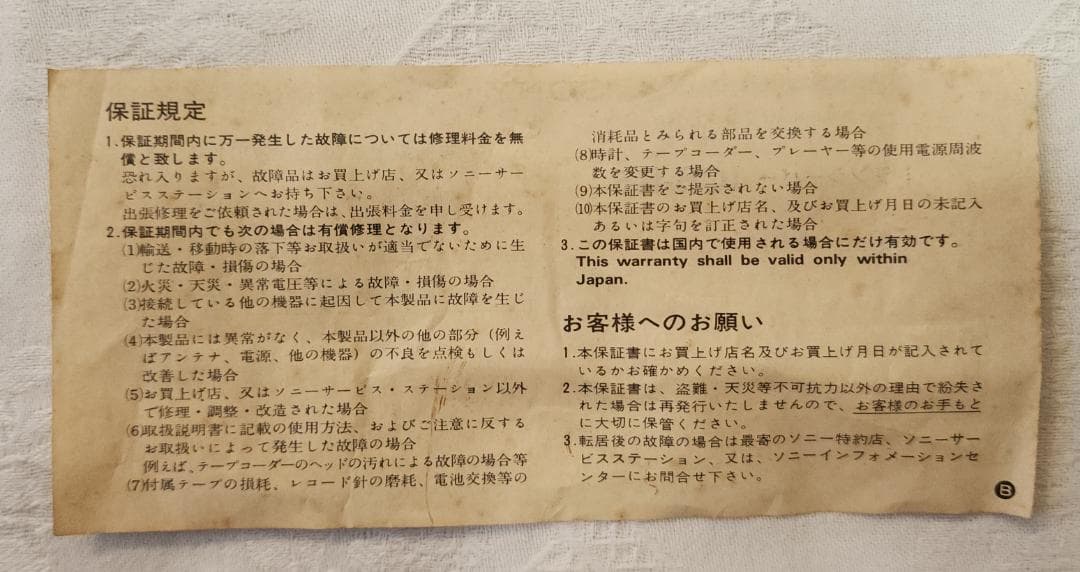 保証規定
1.保証期間内に万一発生した故障については修理料金を無
償と致します。
恐れ入りますが、故障品はお買上げ店、又はソニーサー
ビスステーションへお持ち下さい。
出張修理をご依頼された場合は、出張料金を申し受けます。
2.保証期間内でも次の場合は有償修理となります。
(1)輸送・移動時の落下等お取扱いが適当でないために生
じた故障・損傷の場合
(2)火災・天災・異常電圧等による故障・損傷の場合
(3)接続している他の機器に起因して本製品に故障を生じ
た場合
(4)本製品には異常がなく、本製品以外の他の部分(例え
ばアンテナ、電源、他の機器)の不良を点検もしくは
改善した場合
(5)お買上げ店、又はソニーサービス・ステーション以外
で修理・調整・改造された場合
(6)取扱説明書に記載の使用方法、およびご注意に反する
お取扱いによって発生した故障の場合
例えば、テープコーダーのヘッドの汚れによる故障の場合等
(7)付属テープの損耗、レコード針の磨耗、電池交換等の
消耗品とみられる部品を交換する場合
(8)時計、テープコーダー、プレーヤー等の使用電源周波
数を変更する場合
(9)本保証書をご提示されない場合
(10)本保証書のお買上げ店名、及びお買上げ月日の未記入
あるいは字句を訂正された場合
3.この保証書は国内で使用される場合にだけ有効です。
This warranty shall be valid only within
Japan.
お客様へのお願い
1.本保証書にお買上げ店名及びお買上げ月日が記入されて
いるかお確かめください。
2.本保証書は、盗難・天災等不可抗力以外の理由で紛失さ
れた場合は再発行いたしませんので、お客様のお手もと
に大切に保管ください。
3.転居後の故障の場合は最寄のソニー特約店、ソニーサー
ビスステーション、又は、ソニーインフォメーションセ
ンターにお問合せ下さい。
B